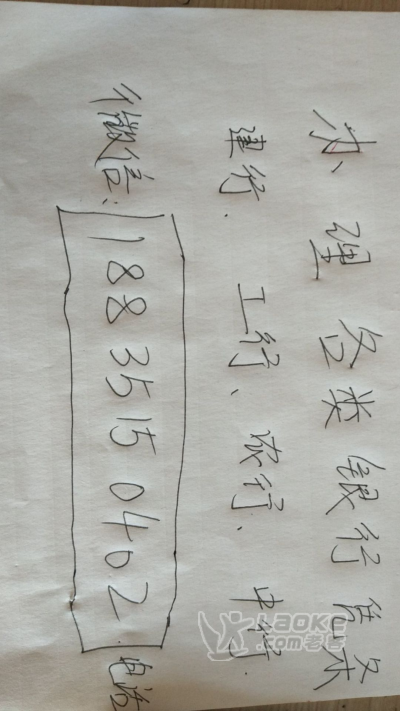 办理各类银行售
建行、工行、农行、中行
微信:18835150402 电话
LAOKE
.com老客